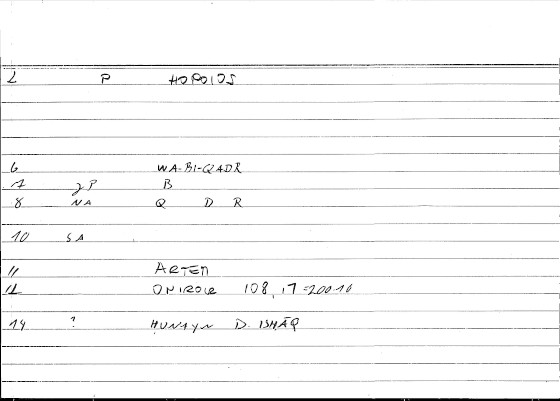 2 P HOPOIOS
6 WA-BI-QADR
7 gP B
8 NA Q D R
10 SA
11 ARTEM
12 ONIROCR 108, 17 = 200 10
14 ? HUNAYN D. ISHĀQ